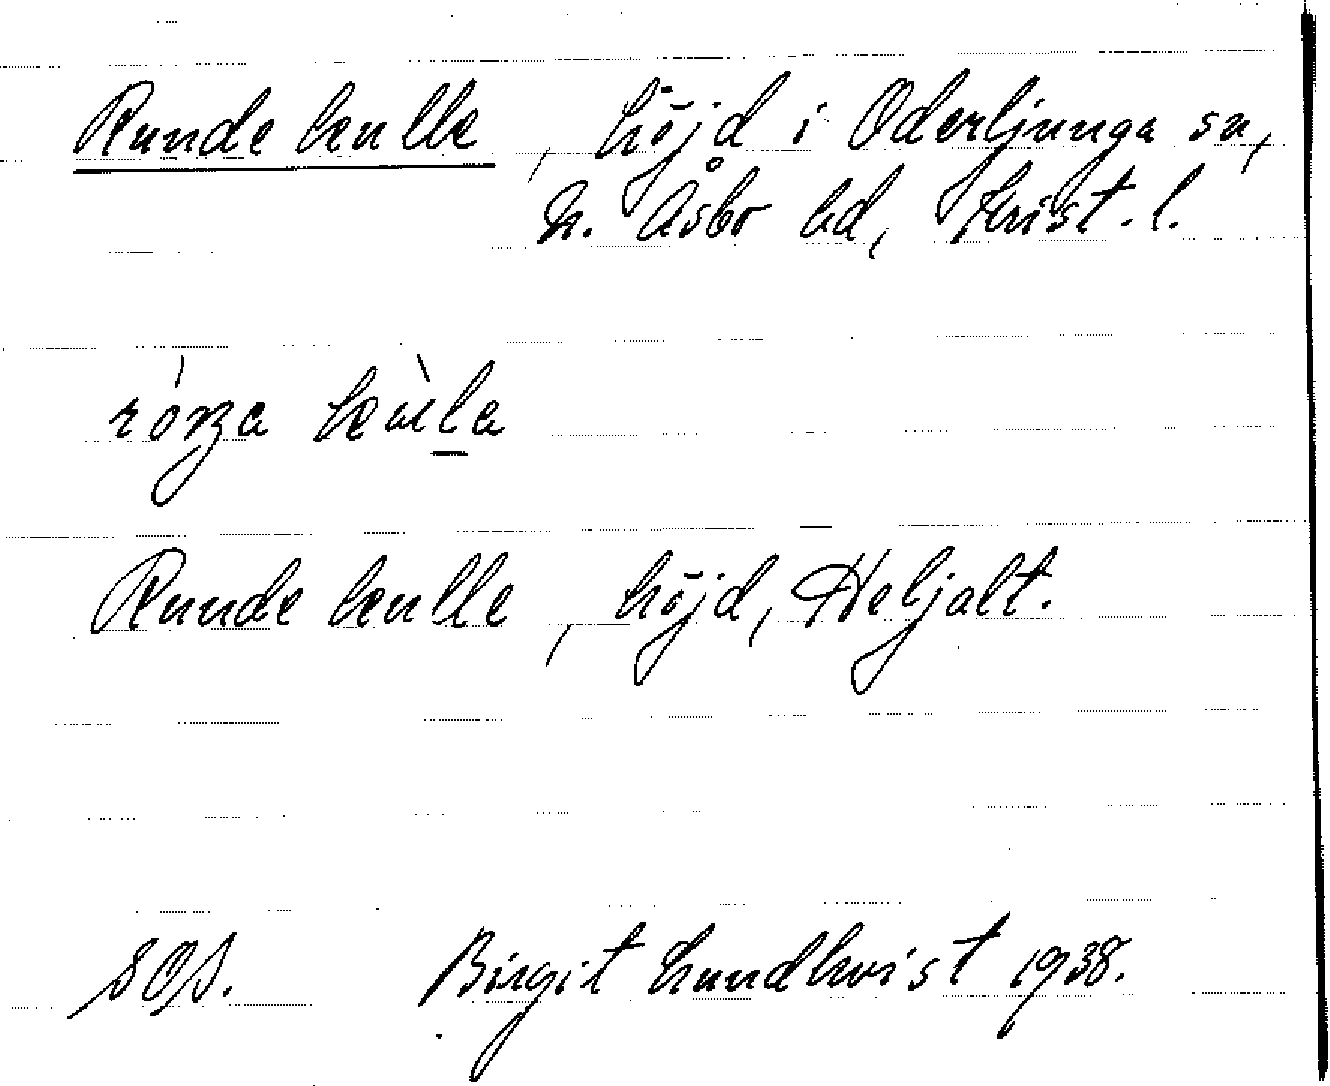 Runde kulle, höjd i Oderljunga sn,
N. Åsbo hd, Krist. l.
Runde kulle, höjd, Heljalt.
SOS. Birgit Lundkvist 1938.